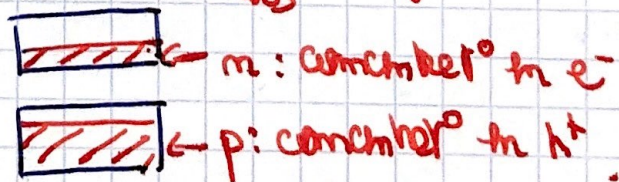 n : concentrat° en e⁻
p : concentrat° en h⁺